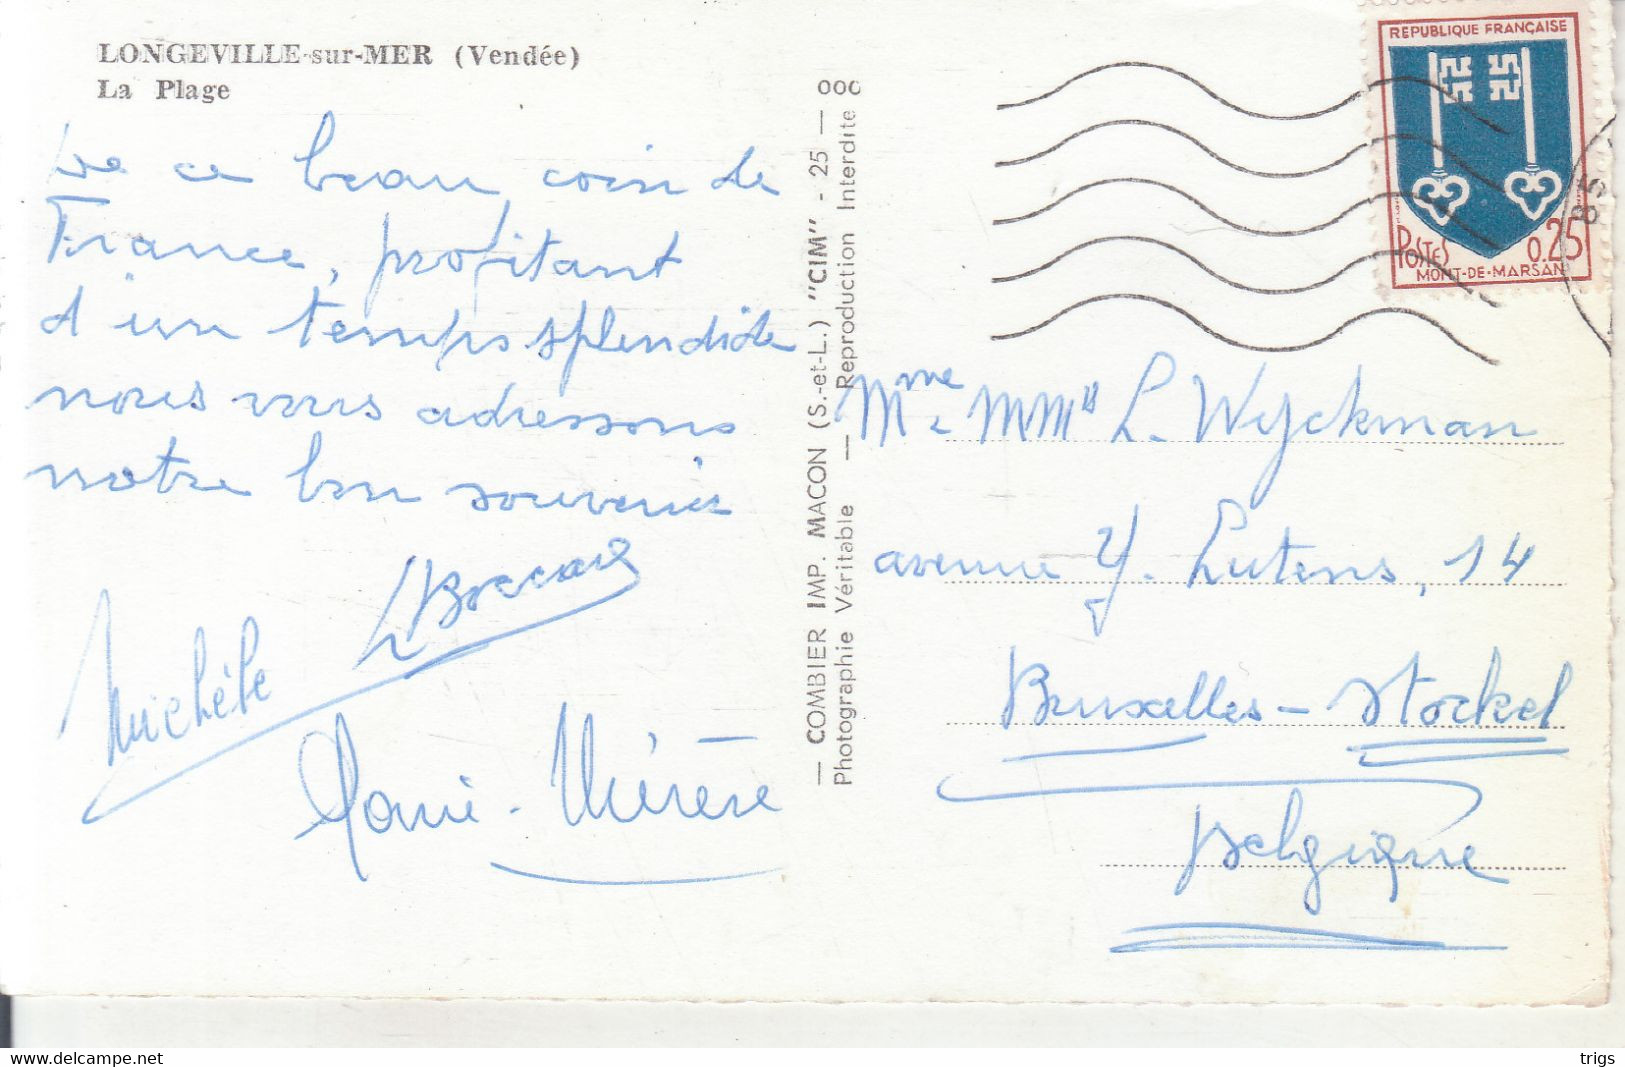 LONGEVILLE-sur-MER (Vendée)
La Plage
De ce beau coin de
France, profitant
d'un temps splendide
nous vous adressons
notre bon souvenir
Michèle
Marie-Thérèse
— COMBIER IMP. MACON (S.-et-L.) "CIM" - 25 —
Photographie Véritable — Reproduction Interdite
REPUBLIQUE FRANÇAISE
POSTES 0.25
MONT-DE-MARSAN
Mme & MM L. Wyckman
avenue Y. Lutens, 14
Bruxelles - Stockel
Belgique
www.delcampe.net
trigs